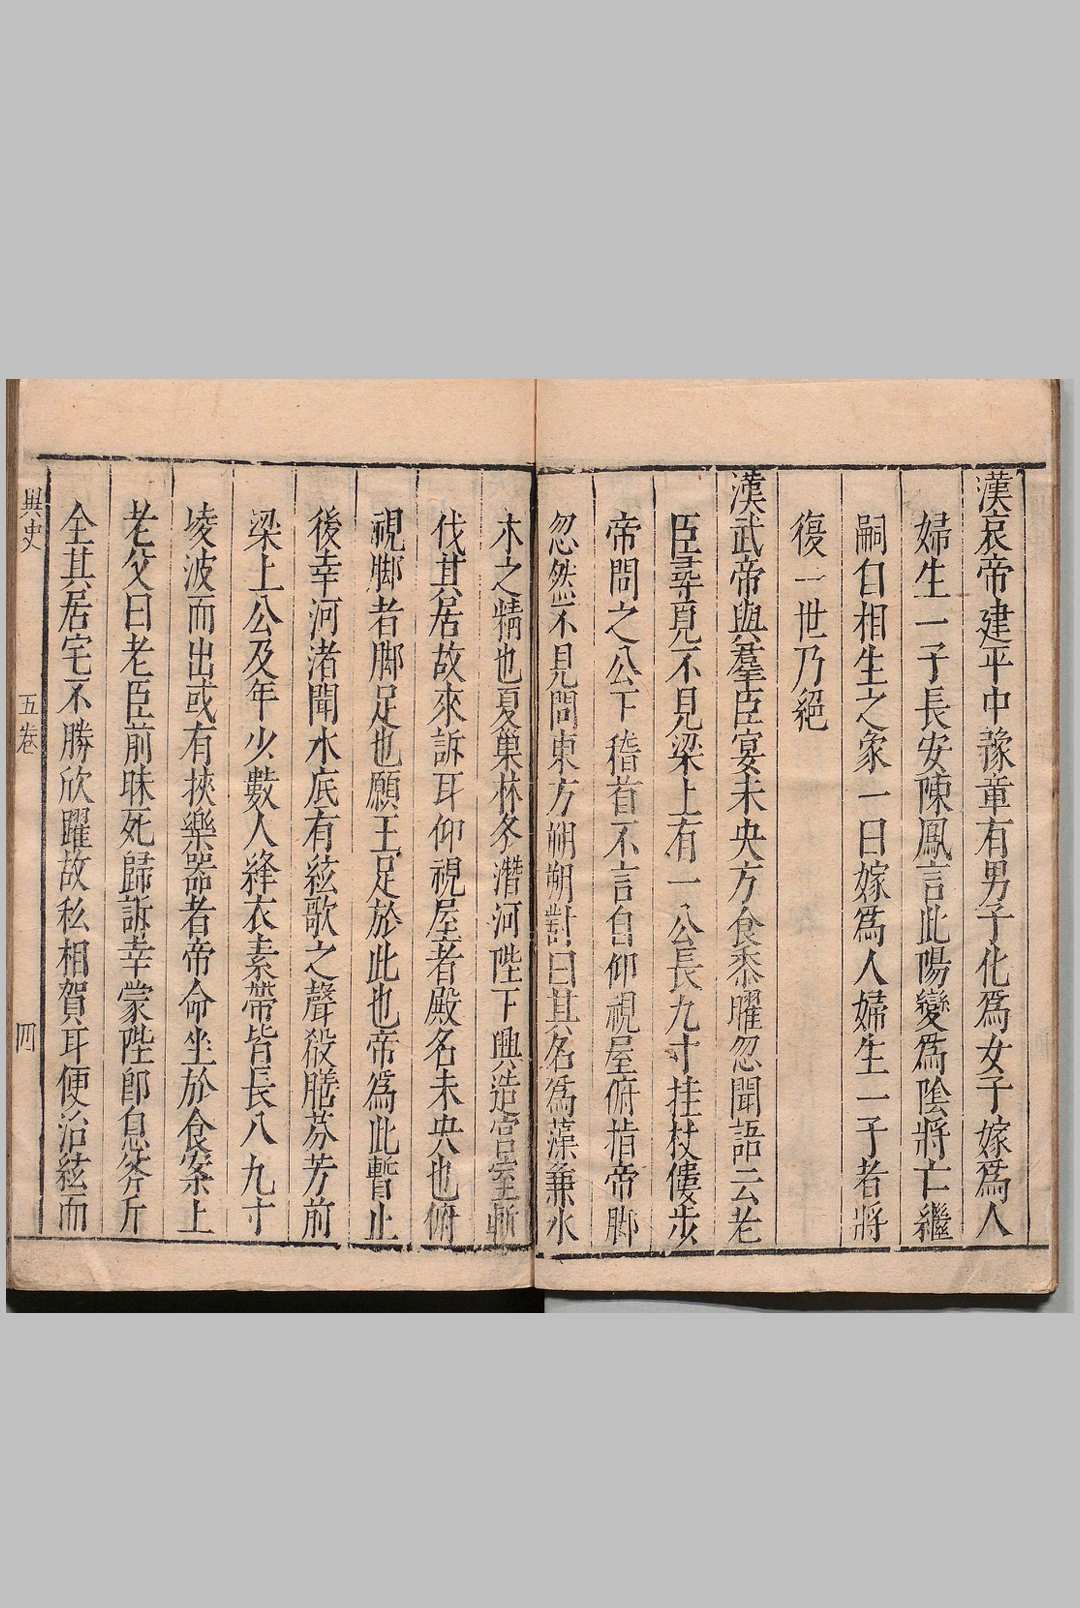 漢哀帝建平中豫章有男子化爲女子嫁爲人
婦生一子長安陳鳳言此陽變爲陰將亡繼
嗣自相生之象一曰嫁爲人婦生一子者將
復一世乃絕
漢武帝與羣臣宴未央方食黍臛忽聞語云老
臣尋見不見梁上有一公長九寸拄杖僂步
帝問之公下稽首不言自仰視屋俯指帝脚
忽然不見問東方朔朔對曰其名爲藻兼水
木之精也夏巢林冬潛河陛下興造宮室斬
伐其居故來訴耳仰視屋者殿名未央也俯
視脚者脚足也願王足於此也帝爲此暫止
後幸河渚聞水底有絃歌之聲殽膳芬芳前
梁上公及年少數人絳衣素帶皆長八九寸
凌波而出或有挾樂器者帝命坐於食案上
老父曰老臣前昧死歸訴幸蒙陛卽息斧斤
全其居宅不勝欣躍故私相賀耳便治絃而
異史
五卷
四